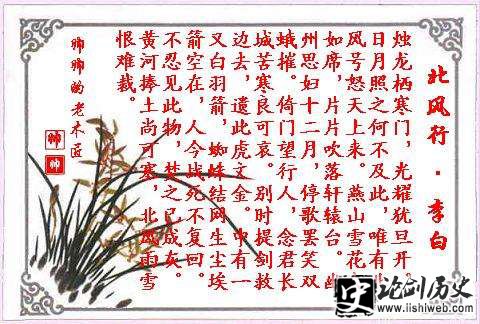 北风行·李白
烛龙栖寒门，光耀犹旦开。
日月照之何不及此，唯有北
风号怒天上来。燕山雪花大
如席，片片吹落轩辕台。幽
州思妇十二月，停歌罢笑双
蛾摧。倚门望行人，念君长
城苦寒良可哀。别时提剑救
边去，遗此虎文金。中有一
又白羽箭，蜘蛛结网生尘埃
箭空在，人今战死不复回。
不忍见此物，焚之已成灰。
黄河捧土尚可塞，北风雨雪
恨难裁。
帅帅的老木匠
史
论剑历史
www.lishiweb.com